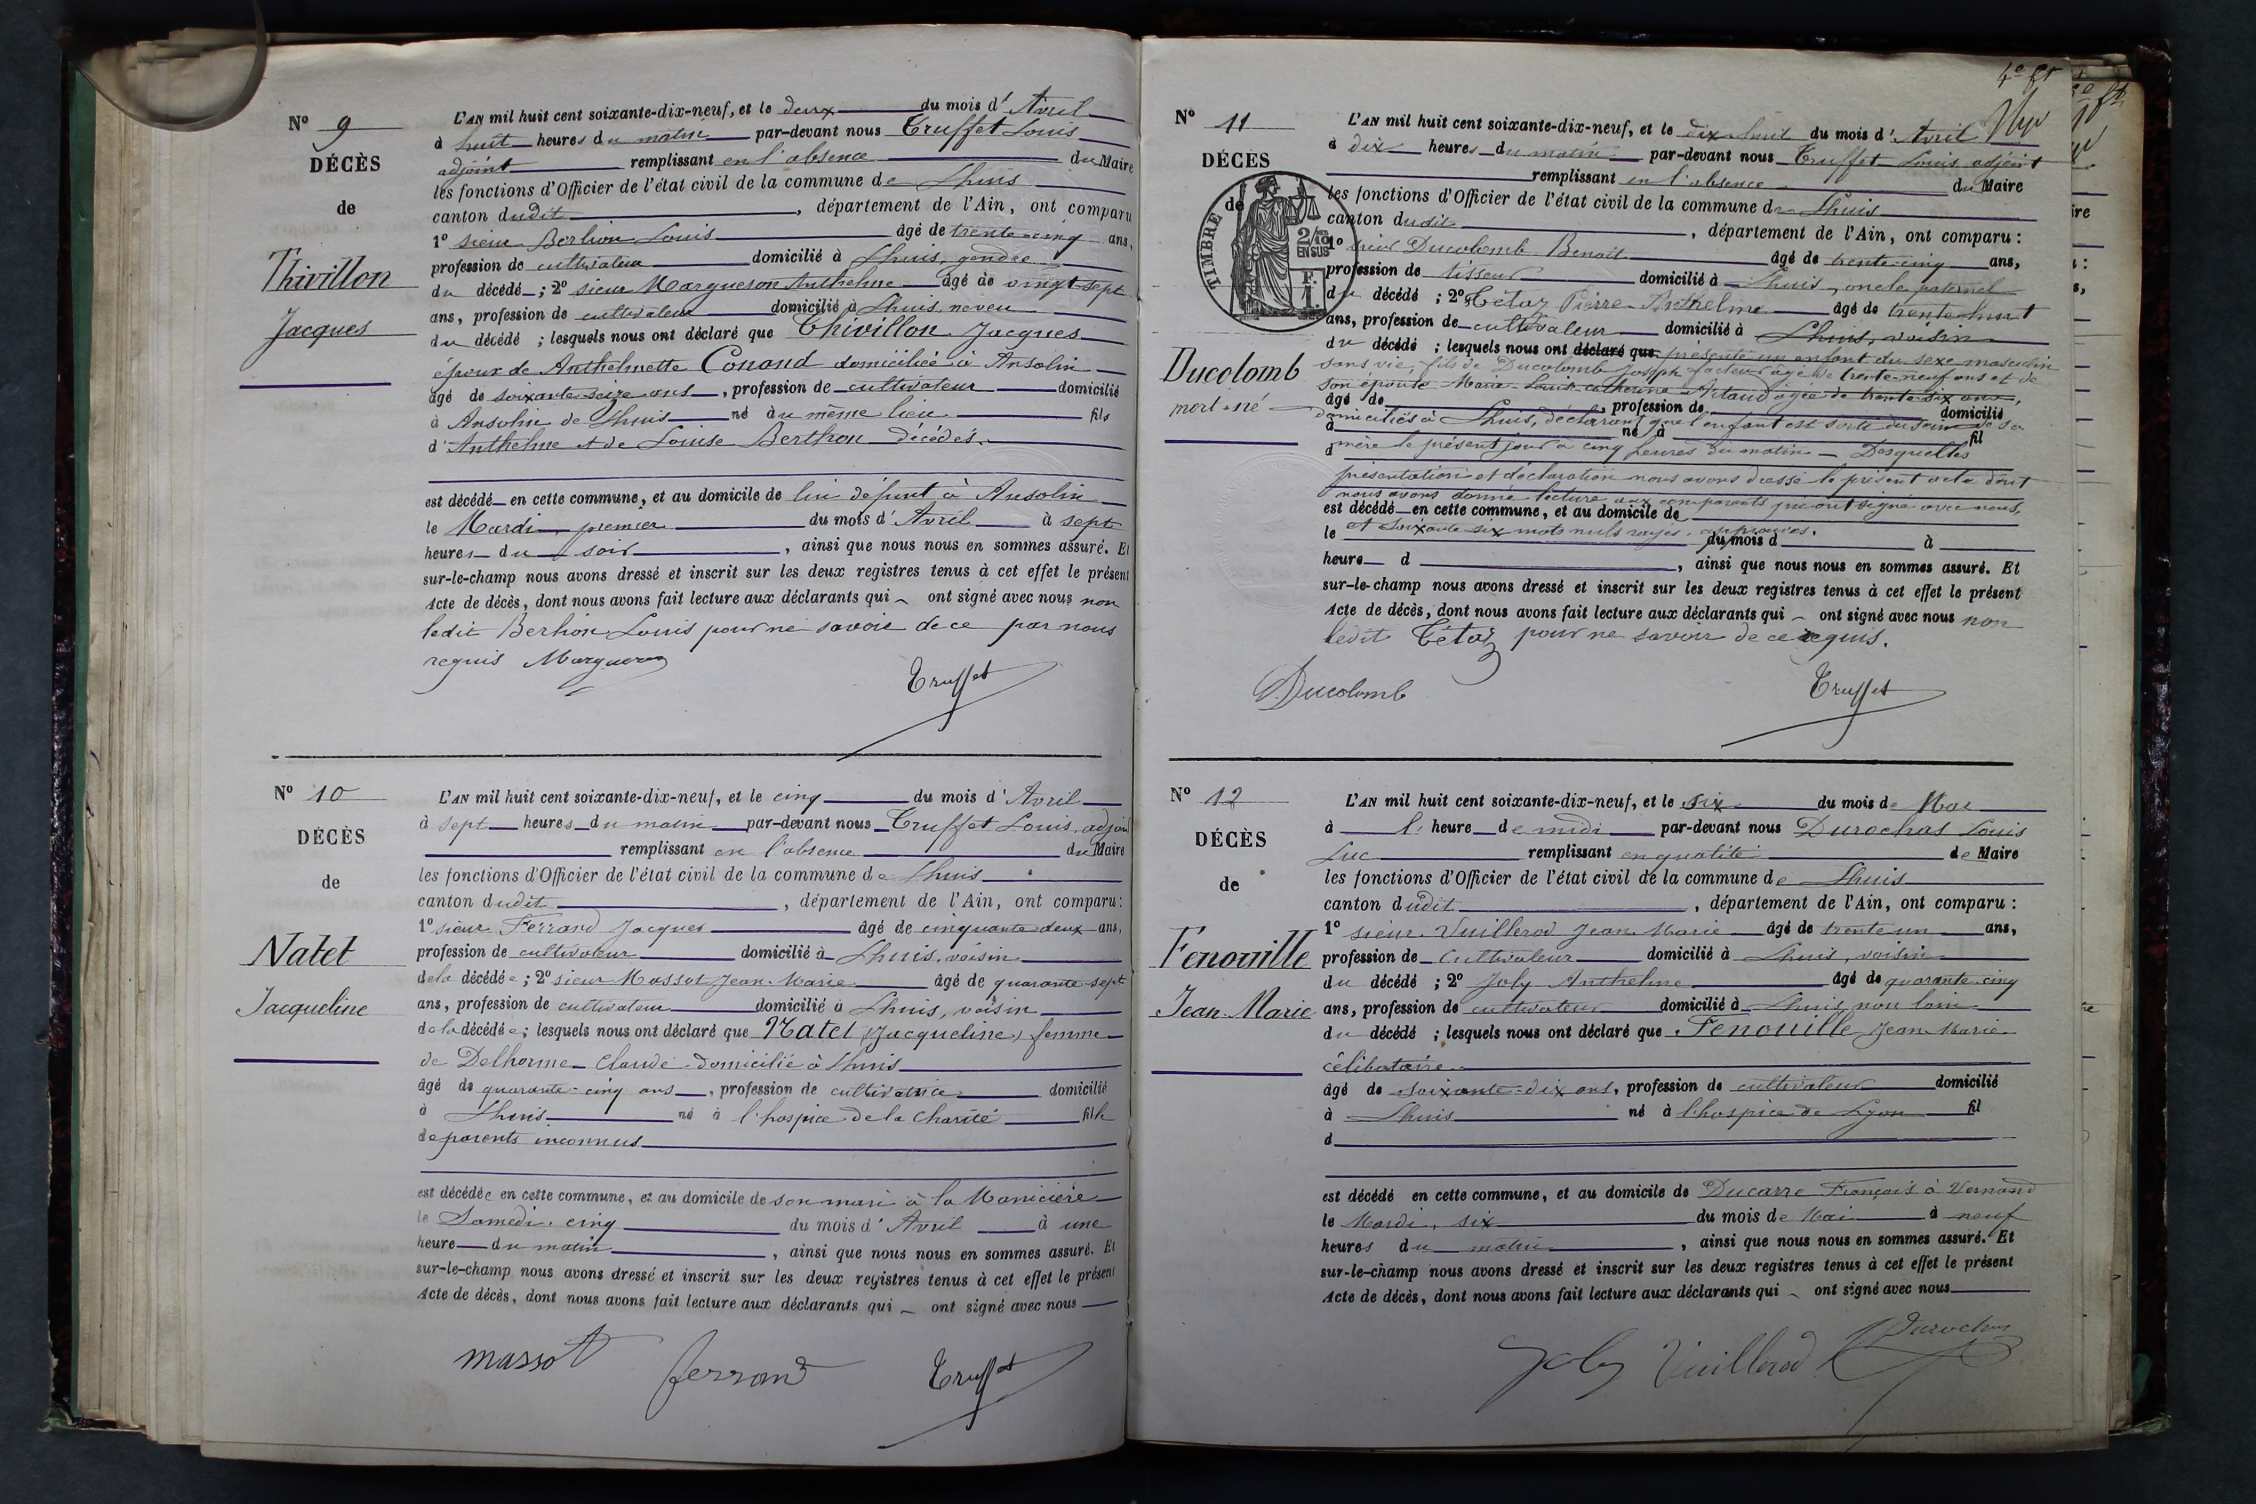 N° 9
DÉCÈS
de
Thivillon
Jacques
L'AN mil huit cent soixante-dix-neuf, et le deux du mois d'Avril
à huit heures du matin par-devant nous Truffet Louis
adjoint remplissant en l'absence du Maire
les fonctions d'Officier de l'état civil de la commune de Lhuis
canton dudit, département de l'Ain, ont comparu
1° sieur Berlion Louis âgé de trente-cinq ans,
profession de cultivateur domicilié à Lhuis, gendre
du décédé ; 2° sieur Margueron Anthelme âgé de vingt-sept
ans, profession de cultivateur domicilié à Lhuis, neveu
du décédé ; lesquels nous ont déclaré que Thivillon Jacques
époux de Anthelmette Conand domiciliée à Ansolin
âgé de soixante-seize ans, profession de cultivateur domicilié
à Ansolin de Lhuis né au même lieu fils
d'Anthelme et de Louise Berthon décédés.
est décédé en cette commune, et au domicile de lui défunt à Ansolin
le Mardi premier du mois d'Avril à sept
heures du soir, ainsi que nous nous en sommes assuré. Et
sur-le-champ nous avons dressé et inscrit sur les deux registres tenus à cet effet le présent
Acte de décès, dont nous avons fait lecture aux déclarants qui ont signé avec nous non
ledit Berlion Louis pour ne savoir de ce par nous
requis Margueron
Truffet
N° 10
DÉCÈS
de
Natel
Jacqueline
L'AN mil huit cent soixante-dix-neuf, et le cinq du mois d'Avril
à sept heures du matin par-devant nous Truffet Louis adjoint
remplissant en l'absence du Maire
les fonctions d'Officier de l'état civil de la commune de Lhuis
canton dudit, département de l'Ain, ont comparu:
1° sieur Ferrand Jacques âgé de cinquante deux ans,
profession de cultivateur domicilié à Lhuis, voisin
de la décédée ; 2° sieur Massot Jean Marie âgé de quarante-sept
ans, profession de cultivateur domicilié à Lhuis, voisin
de la décédée ; lesquels nous ont déclaré que Natel (Jacqueline) femme
de Delhorme Claude domicilié à Lhuis
âgé de quarante-cinq ans, profession de cultivatrice domicilié
à Lhuis né à l'hospice de la Charité fille
de parents inconnus
est décédée en cette commune, et au domicile de son mari à la
le Samedi cinq du mois d'Avril à une
heure du matin, ainsi que nous nous en sommes assuré. Et
sur-le-champ nous avons dressé et inscrit sur les deux registres tenus à cet effet le présent
Acte de décès, dont nous avons fait lecture aux déclarants qui ont signé avec nous
massot ferrand Truffet
4e ft
N° 11
DÉCÈS
de
TIMBRE
2/10 EN SUS
Ducolomb
mort-né
L'AN mil huit cent soixante-dix-neuf, et le dix-huit du mois d'Avril
à dix heures du matin par-devant nous Truffet Louis adjoint
remplissant en l'absence du Maire
les fonctions d'Officier de l'état civil de la commune de Lhuis
canton dudit, département de l'Ain, ont comparu :
1° sieur Ducolomb Benoit âgé de trente-cinq ans,
profession de tisseur domicilié à Lhuis, oncle paternel
du décédé ; 2° Tétaz Pierre Anthelme âgé de trente-huit
ans, profession de cultivateur domicilié à Lhuis, voisin
du décédé ; lesquels nous ont déclaré que présenté un enfant du sexe masculin
sans vie, fils de Ducolomb Joseph facteur âgé de trente-neuf ans et de
son épouse Marie Louise Catherine Artaud âgée de trente-six ans,
âgé de, profession de domicilié
domiciliés à Lhuis, déclarant que l'enfant est sorti du sein de sa
à né à fil
mère le présent jour à cinq heures du matin - Desquelles
d
présentation et déclaration nous avons dressé le présent acte dont
nous avons donné lecture aux comparants qui ont signé avec nous,
est décédé en cette commune, et au domicile de
et soixante six mots nuls rayés approuvés.
le du mois d à
heure d, ainsi que nous nous en sommes assuré. Et
sur-le-champ nous avons dressé et inscrit sur les deux registres tenus à cet effet le présent
Acte de décès, dont nous avons fait lecture aux déclarants qui ont signé avec nous non
ledit Tétaz pour ne savoir de ce requis.
Ducolomb Truffet
N° 12
DÉCÈS
de
Fenouille
Jean Marie
L'AN mil huit cent soixante-dix-neuf, et le six du mois de Mai
à l' heure de midi par-devant nous Durochas Louis
Luc remplissant en qualité de Maire
les fonctions d'Officier de l'état civil de la commune de Lhuis
canton dudit, département de l'Ain, ont comparu :
1° sieur Vuillerod Jean Marie âgé de trente un ans,
profession de cultivateur domicilié à Lhuis, voisin
du décédé ; 2° Joly Anthelme âgé de quarante-cinq
ans, profession de cultivateur domicilié à Lhuis, non loin
du décédé ; lesquels nous ont déclaré que Fenouille Jean Marie
célibataire
âgé de soixante-dix ans, profession de cultivateur domicilié
à Lhuis né à l'hospice de Lyon fil
d
est décédé en cette commune, et au domicile de Ducarre François à Vernand
le Mardi, six du mois de Mai à neuf
heures du matin, ainsi que nous nous en sommes assuré. Et
sur-le-champ nous avons dressé et inscrit sur les deux registres tenus à cet effet le présent
Acte de décès, dont nous avons fait lecture aux déclarants qui ont signé avec nous
Joly Vuillerod Durochas